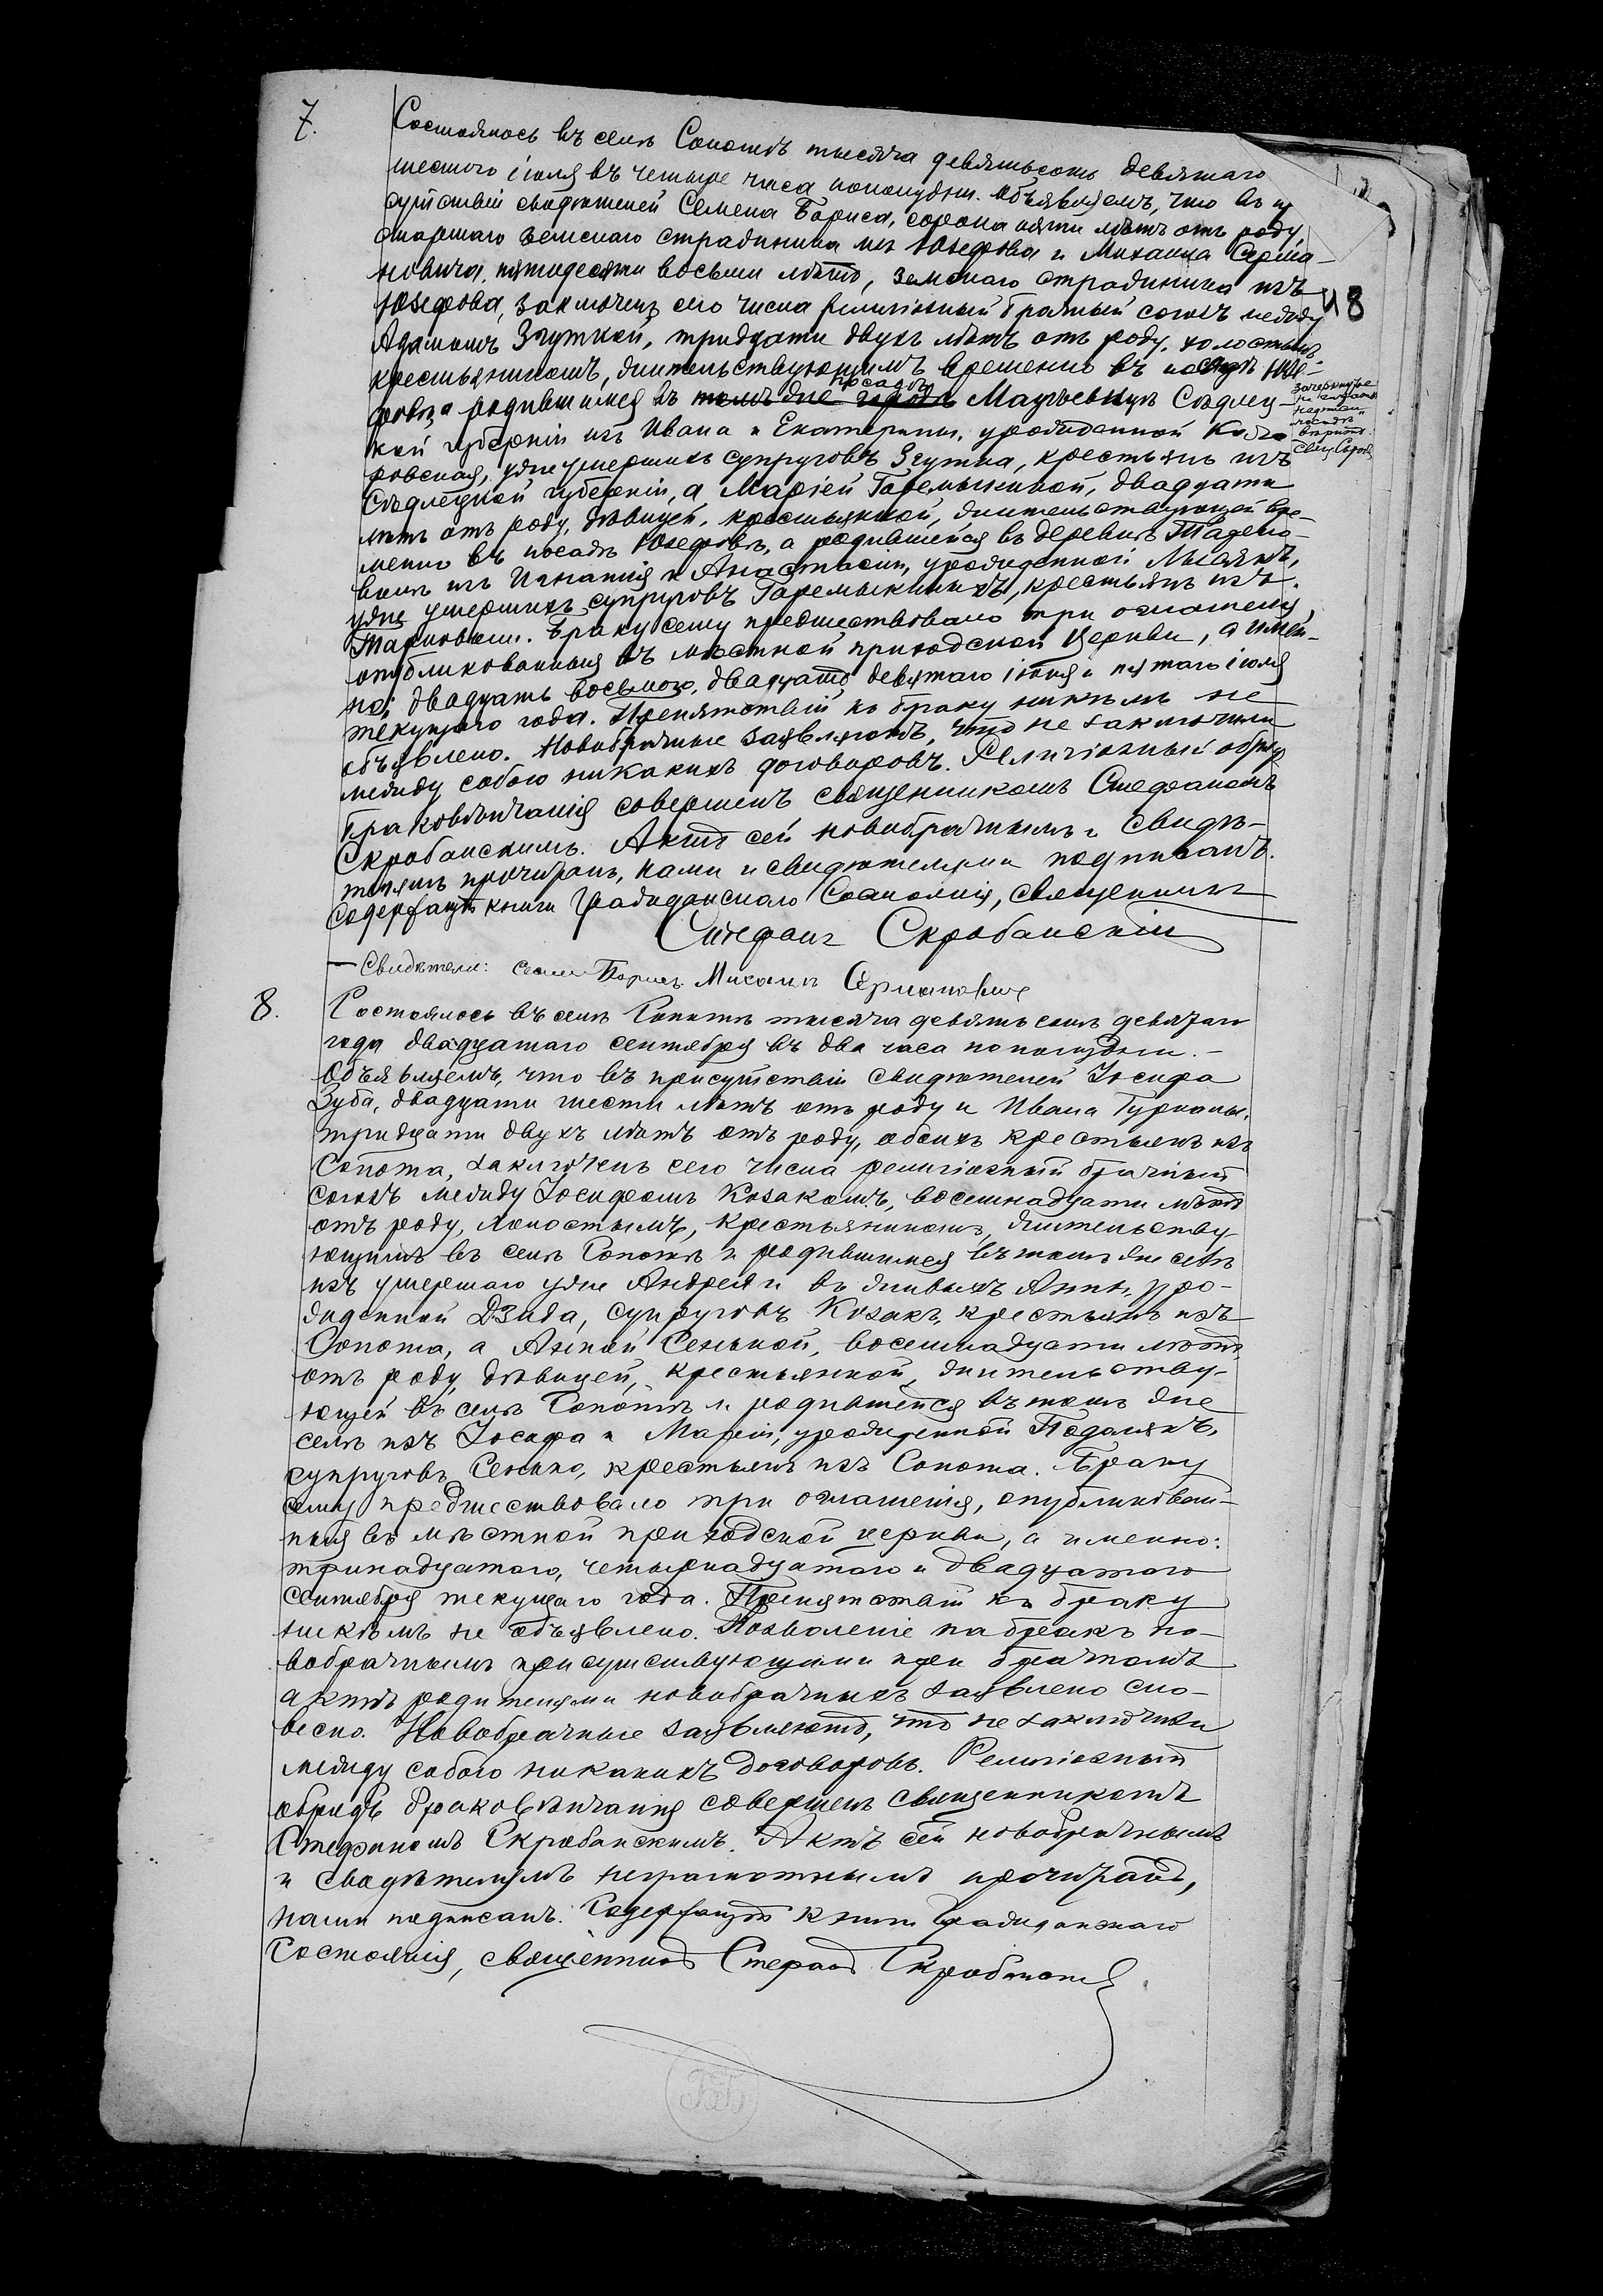 7.
Состоялось въ селѣ Сопотѣ тысяча девятьсотъ девятаго
шестого іюля въ четыре часа пополудни. Объявляемъ, что въ
сутствіи свидѣтелей Семена Бориса, сорока пяти лѣтъ отъ роду
старшаго земскаго стражника изъ Юзефова и Михаила Серма-
новича, пятидесяти восьми лѣтъ, земскаго стражника изъ
Юзефова, заключенъ сего числа религіозный брачный союзъ между
48
Адамомъ Згуткой, тридцати двухъ лѣтъ отъ роду, холостымъ,
крестьяниномъ, жительствующимъ временно въ посадѣ Юзе-
фовѣ, а родившимся въ томъ же городѣ посадѣ Мацѣевицѣ Сѣдлец-
зачеркнутое
посадѣ
кой губерніи изъ Ивана и Екатерины, урожденной
ровская, уже умершихъ супруговъ Згутка, крестьянъ изъ
Сѣдлецкой губерніи, а Маріей Гаремыкиной, двадцати
лѣтъ отъ роду, дѣвицей, крестьянкой, жительствующей вре-
менно въ посадѣ Юзефовѣ, а родившейся въ деревнѣ
изъ Игнатія и Анастасіи, урожденной Лысякъ,
уже умершихъ супруговъ Гаремыкиныхъ, крестьянъ изъ
Браку сему предшествовало три оглашенія,
опубликованныя въ мѣстной приходской церкви, а имен-
но: двадцать восьмого, двадцать девятаго іюня и пятаго іюля
текущаго года. Препятствій къ браку никѣмъ не
объявлено. Новобрачные заявляютъ, что не заключили
между собою никакихъ договоровъ. Религіозный обрядъ
браковѣнчанія совершенъ священникомъ Стефаномъ
Скробанскимъ. Актъ сей новобрачнымъ и свидѣ-
телямъ прочитанъ, нами и свидѣтелями подписанъ.
Содержащій книги Гражданскаго Состоянія, священникъ
Стефанъ Скробанскій
Свидѣтели: Семенъ Борисъ Михаилъ Сермановичъ
8.
Состоялось въ селѣ Сопотѣ тысяча девятьсотъ девятаго
года двадцатаго сентября въ два часа пополудни. –
Объявляемъ, что въ присутствіи свидѣтелей Іосифа
Зуба, двадцати шести лѣтъ отъ роду и Ивана
тридцати двухъ лѣтъ отъ роду, обоихъ крестьянъ изъ
Сопота, заключенъ сего числа религіозный брачный
союзъ между Іосифомъ Козакомъ, восемнадцати лѣтъ
отъ роду, холостымъ, крестьяниномъ, жительству-
ющимъ въ селѣ Сопотѣ и родившимся въ томъ же селѣ
изъ умершаго уже Андрея и въ живыхъ Анны, уро-
жденной Дзида, супруговъ Козакъ, крестьянъ изъ
Сопота, а Анной Сенькой, восемнадцати лѣтъ,
отъ роду, дѣвицей, крестьянкой, жительству-
ющей въ селѣ Сопотѣ и родившейся въ томъ же
селѣ изъ Іосифа и Маріи, урожденной Подолякъ,
супруговъ Сенько, крестьянъ изъ Сопота. Браку
сему предшествовало три оглашенія, опубликован-
ныя въ мѣстной приходской церкви, а именно:
тринадцатаго, четырнадцатаго и двадцатаго
сентября текущаго года. Препятствій къ браку
никѣмъ не объявлено. Позволеніе на бракъ но-
вобрачнымъ присутствующими при брачномъ
актѣ родителями новобрачныхъ заявлено сло-
весно. Новобрачные заявляютъ, что не заключили
между собою никакихъ договоровъ. Религіозный
обрядъ браковѣнчанія совершенъ священникомъ
Стефаномъ Скробанскимъ. Актъ сей новобрачнымъ
и свидѣтелямъ неграмотнымъ прочитанъ,
нами подписанъ. Содержащій книги Гражданскаго
Состоянія, священникъ Стефанъ Скробанскій